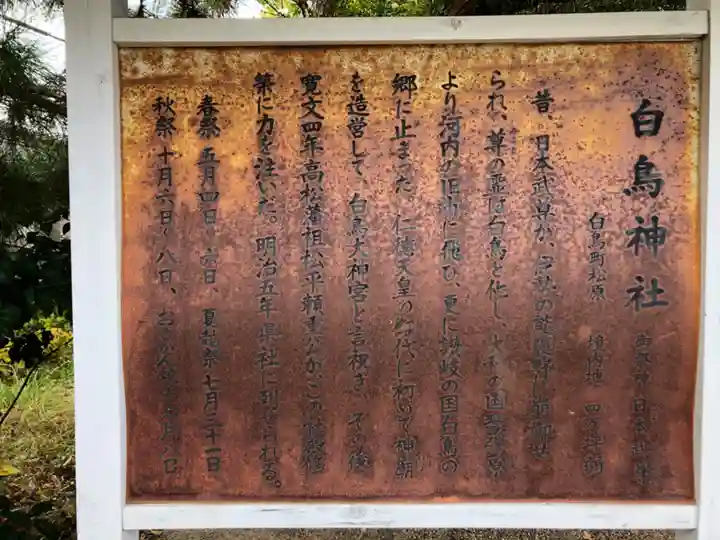 白鳥神社 御祭神 日本武尊
白鳥町松原 境内地
昔、日本武尊が、伊勢の能褒野に崩御せ
られ、尊の霊は白鳥と化し、大和の国琴弾原
より河内の旧市に飛び、更に讃岐の国白鳥の
郷に止まった。仁徳天皇の御代に初めて神廟
を造営して、白鳥大神宮と言祝ぎ、その後
寛文四年高松藩祖松平頼重公がこの社殿修
築に力を注いだ。明治五年県社に列せられる。
春祭 五月四日〜六日、夏越祭七月三十一日、
秋祭 十月六日〜八日、